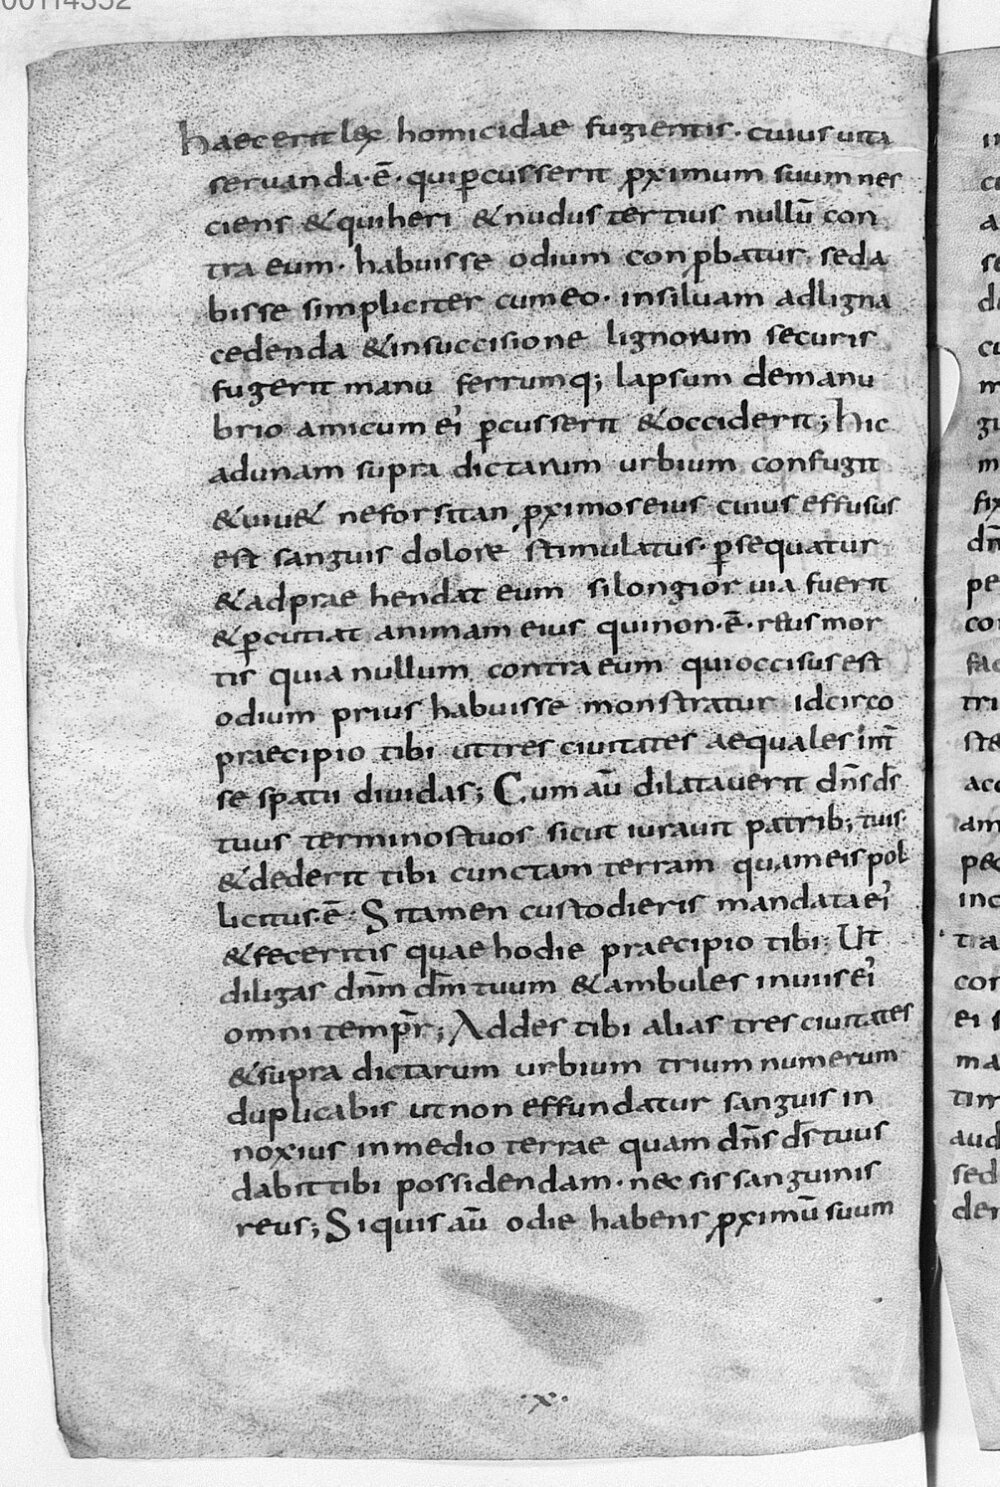 00114352
haec erit lex homicidae fugientis. cuius uita
seruanda·ē· qui ꝑcusserit ꝓximum suum nes
ciens & qui heri & nudus tertius nullū con
tra eum· habuisse odium conꝓbatur· sed a
bisse simpliciter cum eo· in siluam ad ligna
cedenda & in succisione lignorum securis
fugerit manu ferrumq; lapsum de manu
brio amicum ei' ꝑcusserit & occiderit; hic
ad unam supra dictarum urbium confugit
& uiu& ne forsitan ꝓximos eius cuius effusus
est sanguis dolore stimulatus· ꝑsequatur
& adprae hendat eum si longior uia fuerit
& ꝑcutiat animam eius qui non·ē·reus mor
tis quia nullum contra eum qui occisus est
odium prius habuisse monstratur idcirco
praecipio tibi ut tres ciuitates aequales int̄
se spatii diuidas; Cum aū dilatauerit dn̄s ds̄
tuus terminos tuos sicut iurauit patrib; tuis·
& dederit tibi cunctam terram quam eis pol
licitus·ē· Si tamen custodieris mandata ei'
& feceritis quae hodie praecipio tibi· Ut
diligas dn̄m dm̄ tuum & ambules in uiis ei'
omni temp̄r; Addes tibi alias tres ciuitates
& supra dictarum urbium trium numerum
duplicabis ut non effundatur sanguis in
noxius in medio terrae quam dn̄s ds̄ tuus
dabit tibi possidendam· nec sis sanguinis
reus; Si quis aū odie habens ꝓximū suum
·x·